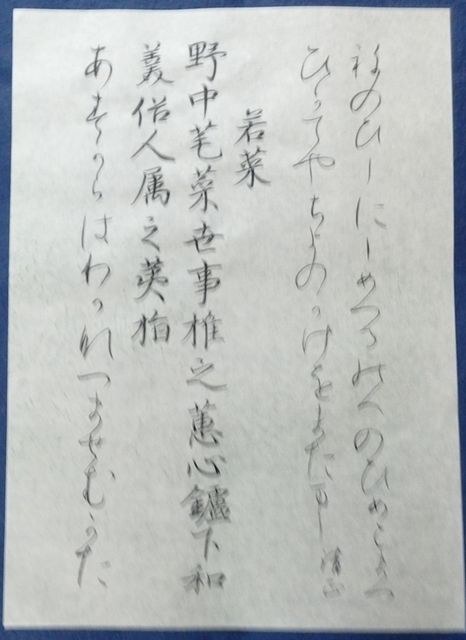 ねのひしにしめつるのへのひめこまつ
ひかてやちよのかけをまたまし 清正
若菜
野中芼菜世事推之蕙心鑪下和
羹俗人属之荑指
あすからはわかなつませむかた